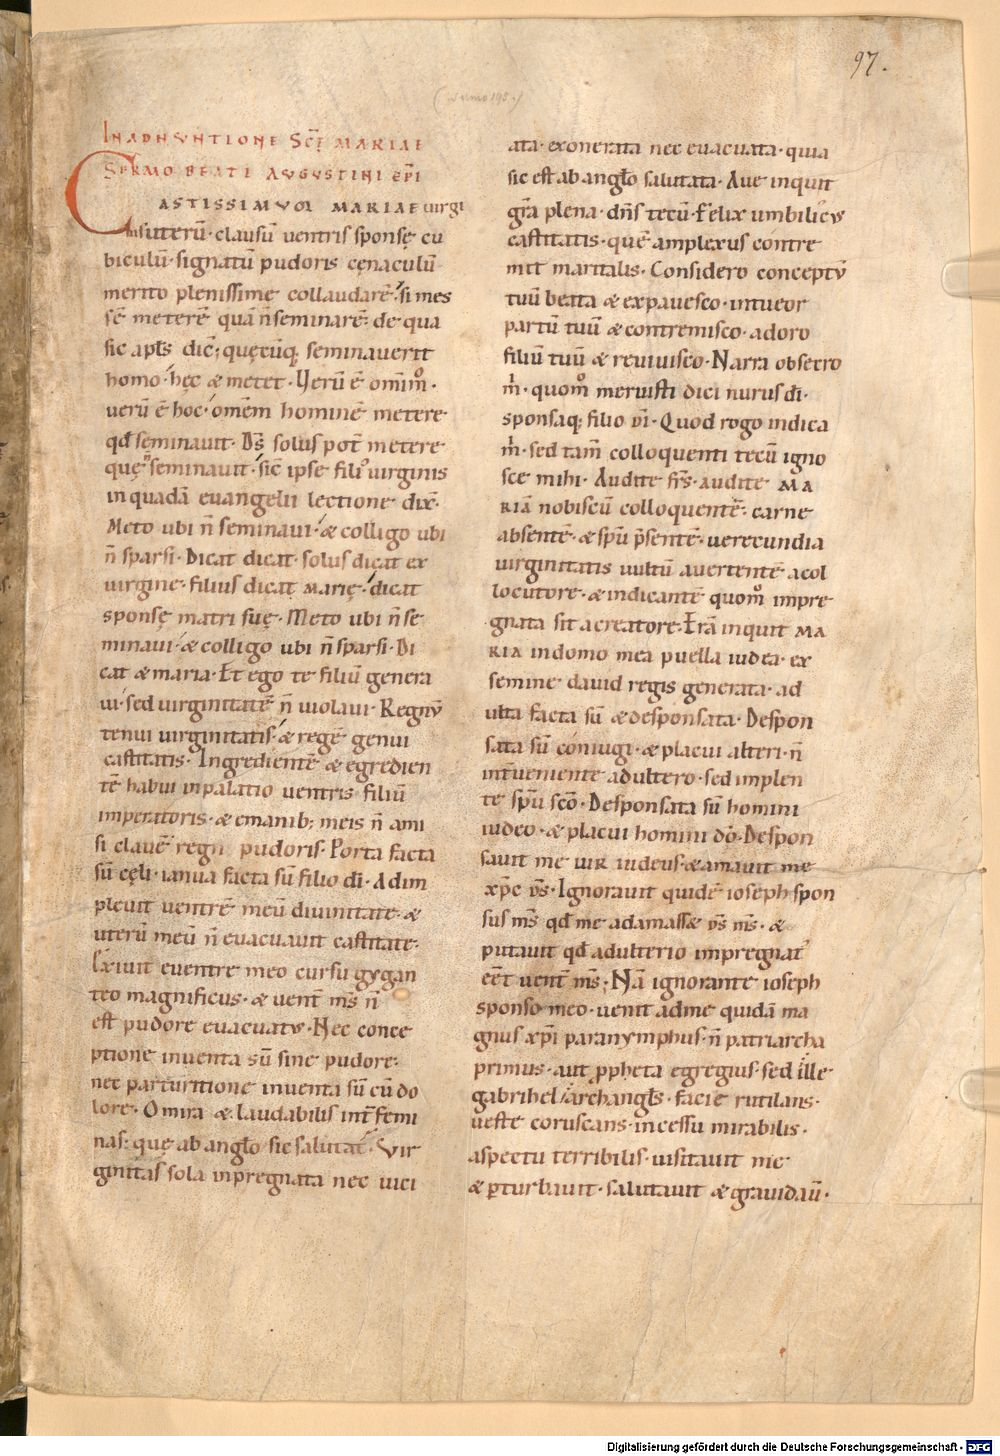 97.
(sermo 195.)
INADNUNTIONE SCĒ MARIAE
SERMO BEATI AUGUSTINI EP̄I
CASTISSIMUM MARIAE uirgi
nis uterū· clausū ventris sponsę cu
biculū· signatū pudoris cęnaculū
merito plenissime collaudarē· si mes
sē meterē quā n̄ seminarē· de qua
sic apłs dic̄; quęcūq; seminaverit
homo· hęc & metet· Verū ē om̄im̊·
verū ē hoc· omēm hominē metere
qđ seminavit· Dˢ̄ solus pot̄ metere
quę n̄ seminavit· sic̄ ipse filiꝰ virginis
in quadā evangelii lectione dix̄·
Meto ubi n̄ seminaui· & colligo ubi
n̄ sparsi· Dicat dicat· solus dicat ex
virgine· filius dicat MARIĘ· dicat
sponsę matri suę· Meto ubi n̄ se
minaui· & colligo ubi n̄ sparsi· Di
cat & maria· Et ego te filiū genera
ui· sed uirginitatē n̄ violaui· Regnū
tenui virginitatis· & regē genui
castitatis· Ingredientē & egredien
tē habui in palatio ventris filiū
imperatoris· & emanib; meis n̄ ami
si clauē regni pudoris· Porta facta
sū cęli· ianua facta sū filio dī· Adim
pleuit ventrē meū divinitate· &
uterū meū n̄ evacuavit castitate·
Exiuit eventre meo cursu gygan
teo magnificus· & vent̄ mˢ̄ n̄
est pudore evacuatꝰ· Nec conce
ptione inventa sū sine pudore·
nec parturitione inventa sū cū do
lore· O mira & laudabilis int̄ femi
nas· quę ab angło sic salutat̄· Vir
ginitas sola inpregnata nec uici
ata· exonerata nec evacuata· quia
sic est ab angło salutata· Ave inquit
gr̄a plena· dn̄s tecū· Felix umbilicꝰ
castitatis· quē amplexus contre
mit maritalis· Considero conceptū
tuū beata & expavesco· intueor
partū tuū & contremisco· adoro
filiū tuū & revivisco· Narra obsecro
m̄· quom̊ meruisti dici nurus dī·
sponsaq; filio dī· Quod rogo indica
m̄· sed tam̄ colloquenti tecū igno
sce mihi· Audite fr̄s· audite MA
RIĀ nobiscū colloquentē· carne
absentē· & spū p̄sentē· verecundia
virginitatis vultū avertentē acol
locutore· & indicantē quom̊ impre
gnata sit a creatore· Erā inquit MA
RIA in domo mea puella iudea· ex
semine david regis generata· ad
ulta facta sū & desponsata· Despon
sata sū coniugi· & placui alteri· n̄
int̄veniente adultero· sed implen
te spū scō· Desponsata sū homini
iudeo· & placui homini dō· Despon
savit me vir iudeus· & amavit me
xp̄c dˢ̄· Ignoravit quidē ioseph spon
sus mˢ̄ qđ me adamasset dˢ̄ mˢ̄· &
putavit qđ adulterio impregnatꝰ
eēt vent̄ mˢ̄; Nā ignorante ioseph
sponso meo· venit adme quidā ma
gnus xp̄i paranymphus· n̄ patriarcha
primus· aut ꝓpheta egregius· sed ille
gabrihel archangłs· facie rutilans·
veste coruscans· incessu mirabilis·
aspectu terribilis· visitavit me
& ꝑturbavit· salutavit & gravidaū·
Digitalisierung gefördert durch die Deutsche Forschungsgemeinschaft - DFG